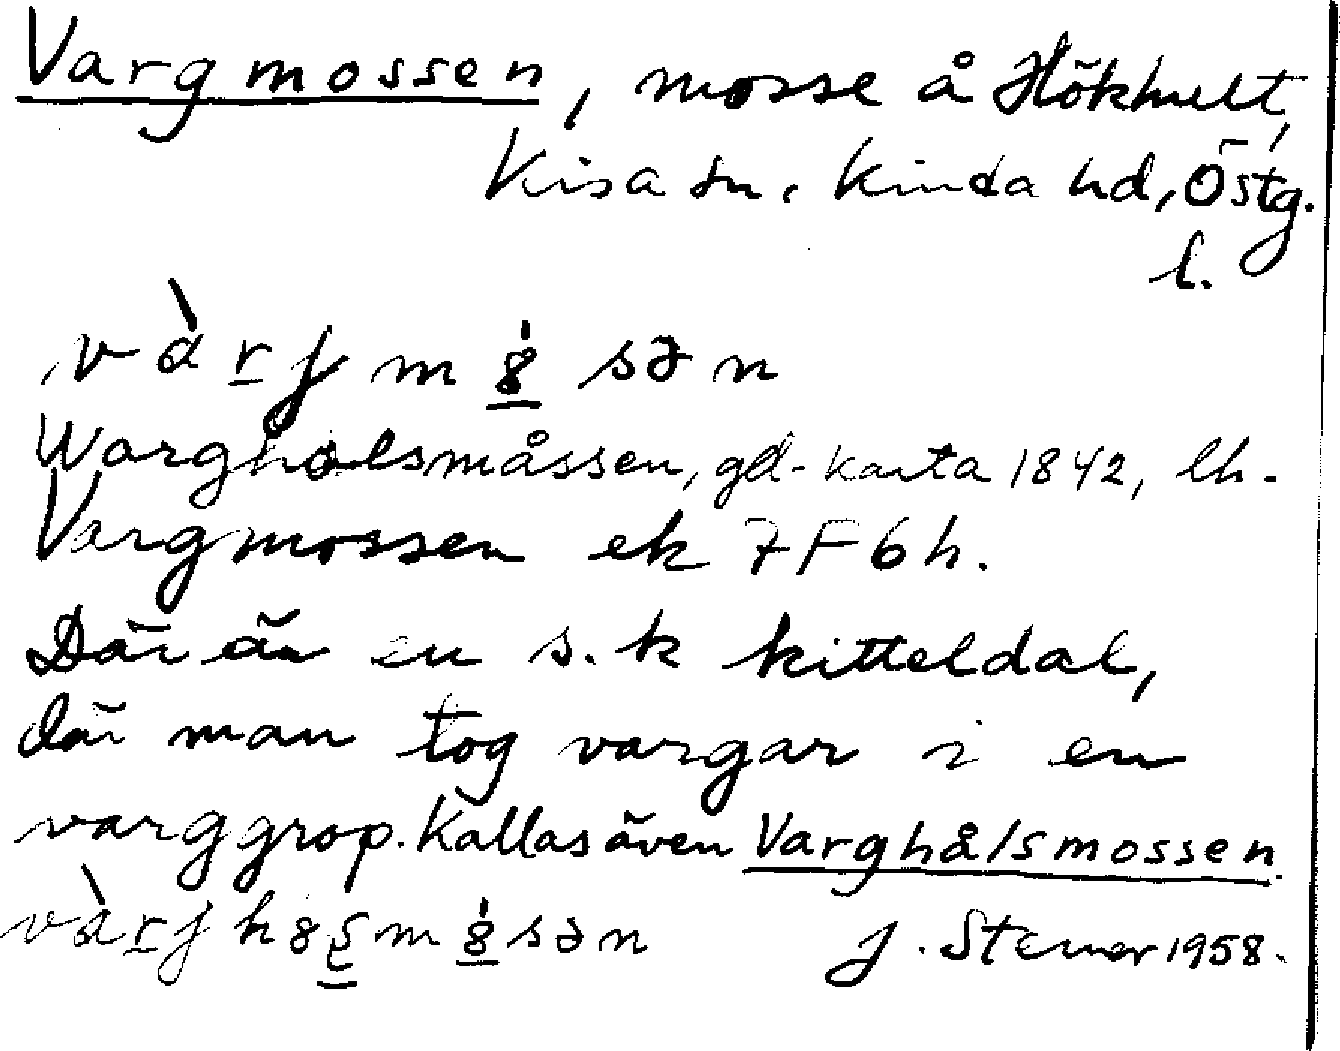 Vargmossen, mosse å Hökhult,
Kisa sn, Kinda hd, Östg.
l.
Wargholsmåssen, gd-karta 1842, lh.
Vargmossen ek 7F6h.
Där är en s.k kitteldal,
där man tog vargar i en
varggrop. Kallas även Varghålsmossen.
J. Stener 1958.